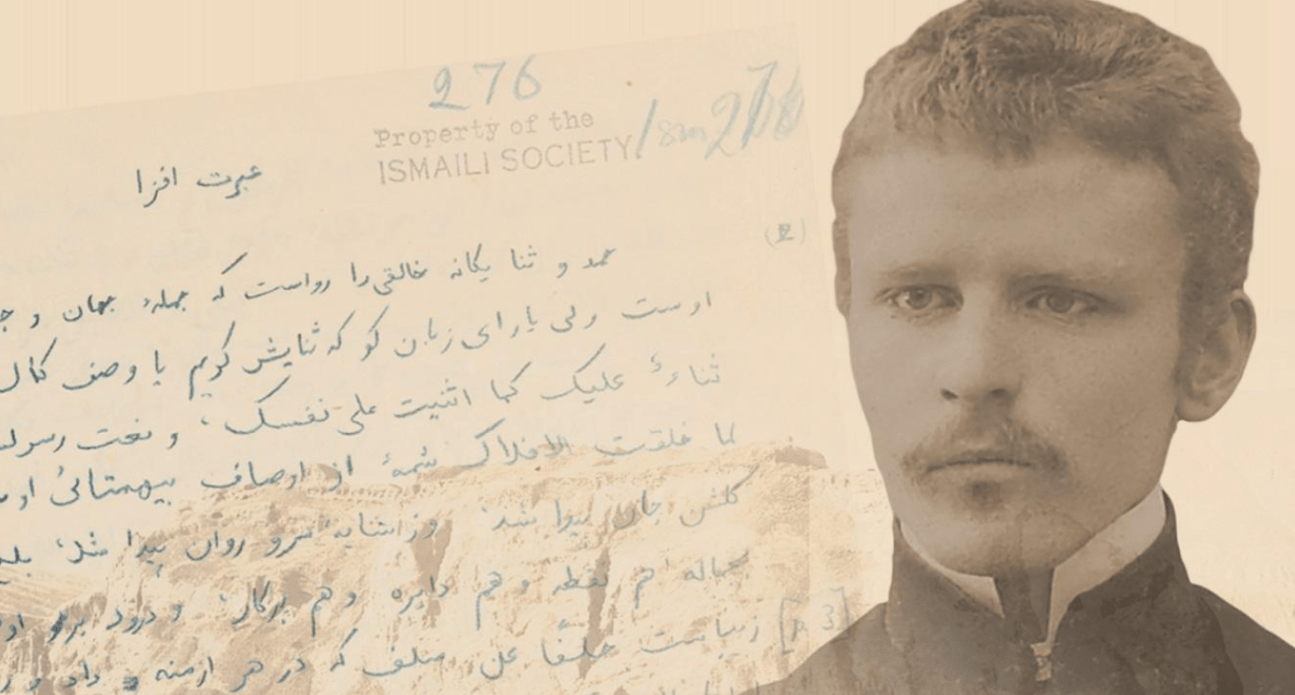 276
Property of the
ISMAILI SOCIETY
عبرت افزا
حمد و ثنا یگانه خالقی را رواست که جمله جهان و
اوست ولی یارای زبان کو که ثنایش گویم یا وصف کمال
ثناءً علیک کما اثنیت علی نفسک، و نعت
لما خلقت الافلاک شمهٔ از اوصاف بیهمتائی
گلشن جان پیدا شد، وز سرو روان پیدا شد، بلغ
بجماله هم نقطه و هم دایره و هم پرکار، و درود بر
[p 3] زیباست خلفاً عن سلف که در هر ازمنه و داد و